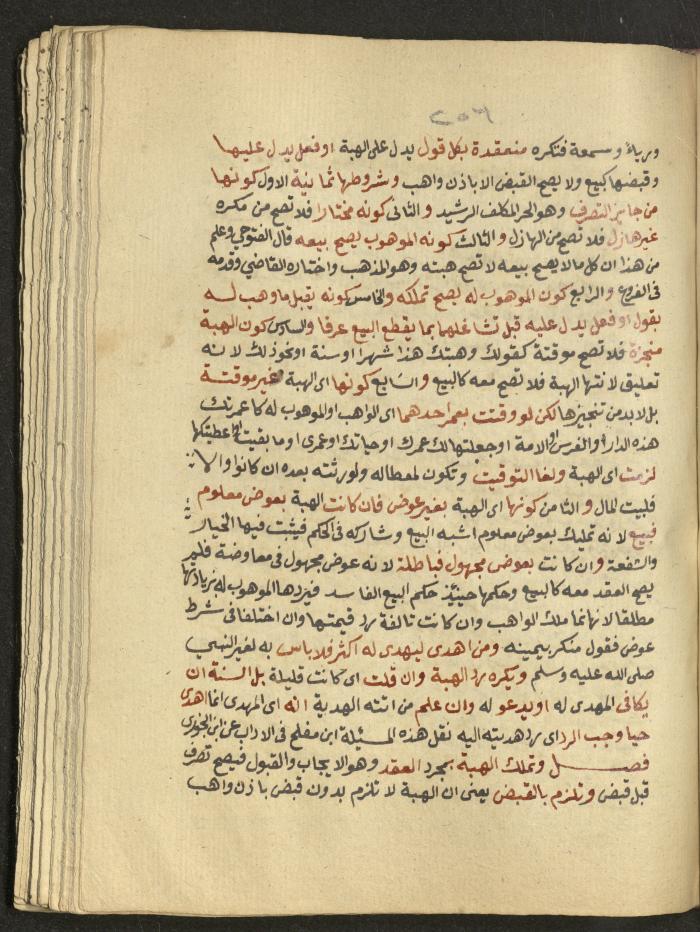 ٢٥٦
ورياء وسمعة فتكره منعقدة بكل قول يدل على الهبة او فعل يدل عليها
وقبضها كبيع ولا يصح القبض الا باذن واهب وشروطها ثمانية الاول كونها
من جايز التصرف وهو الحر المكلف الرشيد والثاني كونه مختارا فلا تصح من مكره
غير هازل فلا تصح من الهازل والثالث كونه الموهوب يصح بيعه قال الفتوحي وعلم
من هذا ان كل ما لا يصح بيعه لا تصح هبته وهو المذهب واختاره القاضي وقدمه
في الفروع والرابع كون الموهوب له يصح تملكه والخامس كونه يقبل ما وهب له
بقول او فعل يدل عليه قبل تشاغلهما بما يقطع البيع عرفا والسادس كون الهبة
منجزة فلا تصح موقتة كقولك وهبتك هذا شهرا او سنة او نحو ذلك لانه
تعليق لانتها الهبة فلا تصح معه كالبيع والسابع كونها اى الهبة غير موقتة
بل لا بد من تنجيزها لكن لو وقتت بعمر احدهما اى الواهب او الموهوب له كاعمرتك
هذه الدار او الفرس او الامة او جعلتها لك عمرك او حياتك او عمرى او ما بقيت او اعطيتكها
لزمت اى الهبة ولغا التوقيت وتكون لمعطاله ولورثته بعده ان كانوا والا
فلبيت المال والثامن كونها اى الهبة بغير عوض فان كانت الهبة بعوض معلوم
فبيع لانه تمليك بعوض معلوم اشبه البيع وشاركه في الحكم فيثبت فيها الخيار
والشفعة وان كانت بعوض مجهول فباطلة لانه عوض مجهول في معاوضة فلم
يصح العقد معه كالبيع وحكمها حينئذ حكم البيع الفاسد فيردها الموهوب له بزيادتها
مطلقا لانها نما ملك الواهب وان كانت تالفة رد قيمتها وان اختلفا في شرط
عوض فقول منكر بيمينه ومن اهدى ليهدى له اكثر فلا باس به لغير النبي
صلى الله عليه وسلم ويكره رد الهبة وان قلت اى كانت قليلة بل السنة ان
يكافي المهدى له او يدعو له وان علم من اتته الهدية انه اى المهدى انما اهدى
حيا وجب الرد اى رد هديته اليه نقل هذه المسئلة ابن مفلح في الاداب عن ابن الجوزى
فصل وتملك الهبة بمجرد العقد وهو الايجاب والقبول فيصح تصرف
قبل قبض وتلزم بالقبض يعنى ان الهبة لا تلزم بدون قبض باذن واهب